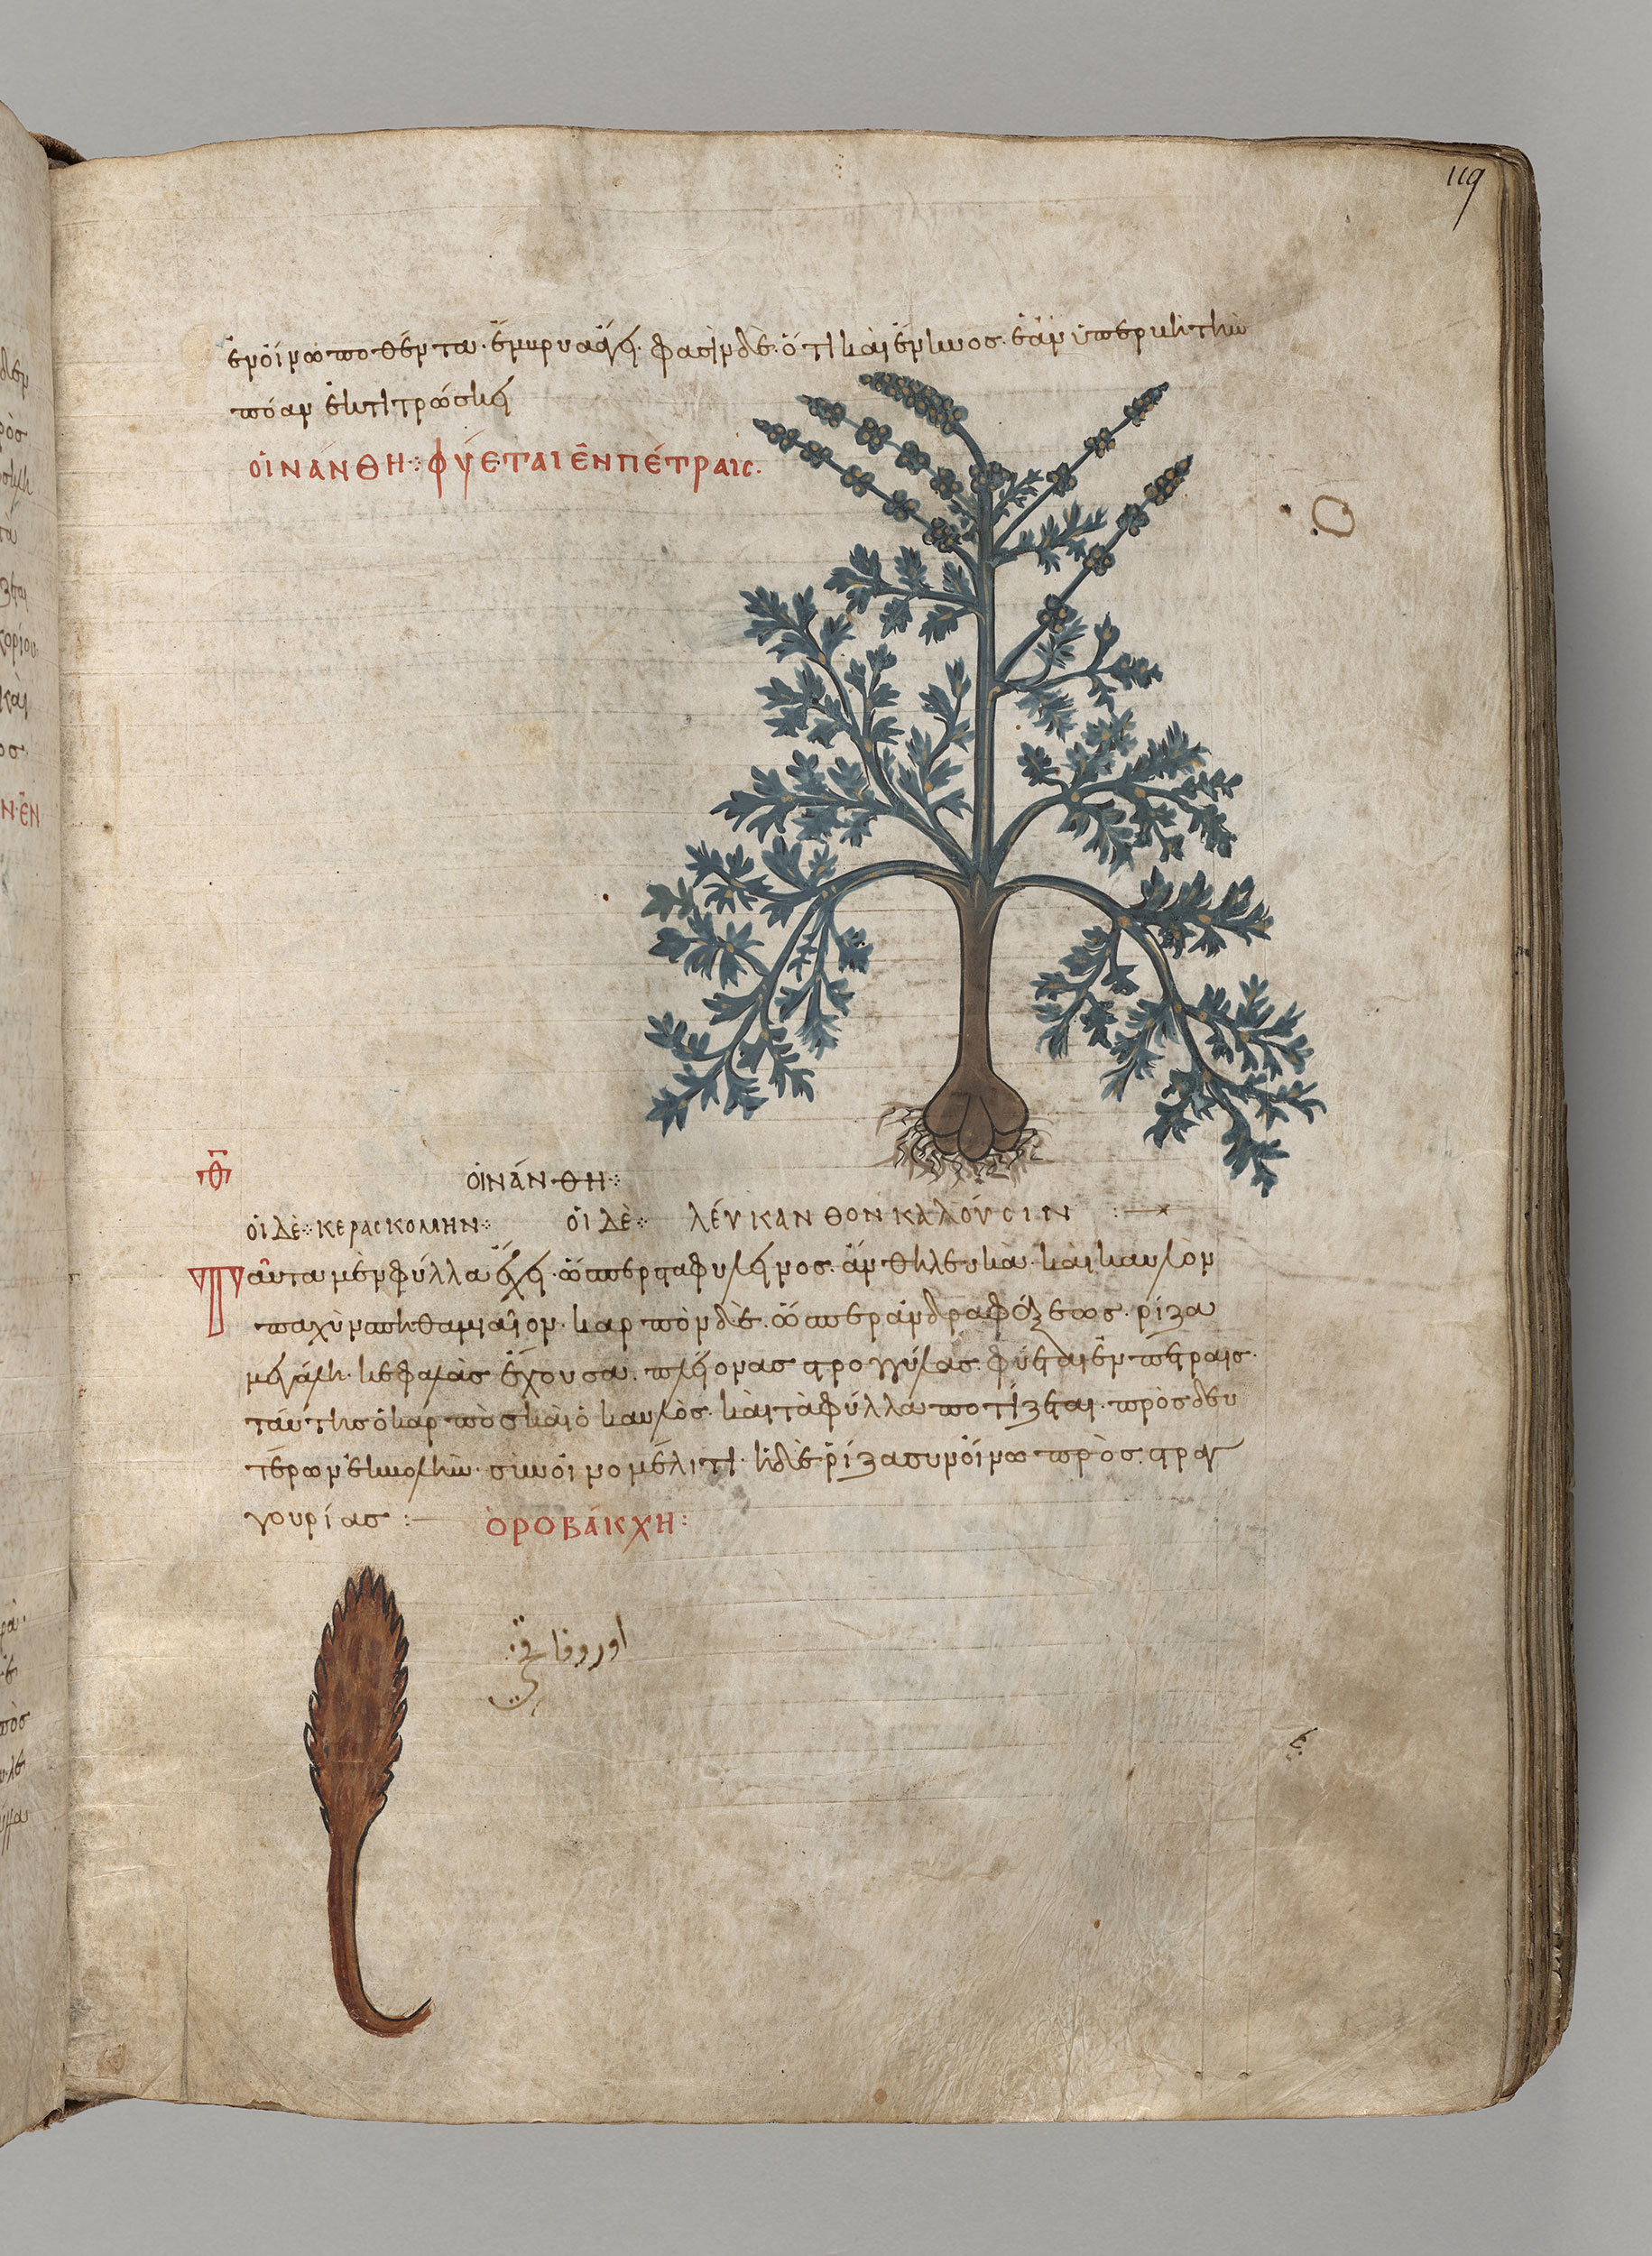 119
ἐν οἴνω ποθέντα· ἔμβρυα ἄγει· φασὶν δὲ· ὅτι καὶ ἔγκυος· ἐὰν ὑπερβῆ τὴν
πόαν ἐκτιτρώσκει
ΟἸΝΆΝΘΗ· ΦΎΕΤΑΙ ἘΝ ΠΈΤΡΑΙC·
ΟἸΝΆΝΘΗ
ΟἹ ΔῈ ΚΕΡΑCΚΟΜΗΝ ΟἹ ΔῈ ΛΈΥΚΑΝΘΟΝ ΚΑΛΟΎCΙΝ
Ταῦτα μὲν φύλλα ἔχει· ὥσπερ σταφυλεῖνος· ἄνθη λευκὰ· καὶ καυλὸν
παχὺν σπηθαμιαῖον· καρπὸν δὲ· ὥσπερ ἀνδραφάξεως· ρίζα
μεγάλη· κεφαλὰς ἔχουσα· πλείονας στρογγύλας· φύεται ἐν πέτραις·
ταύτης ὁ καρπὸς καὶ ὁ καυλὸς· καὶ τὰ φύλλα ποτίζεται· πρὸς δευ
τέρων ἐκβολὴν· σὺν οἰνομέλιτι· ἡ δὲ ῥίζα συν οἴνω πρὸς στραγ
γουρίας
ὈΡΟΒΆΚΧΗ
اوروفاخى